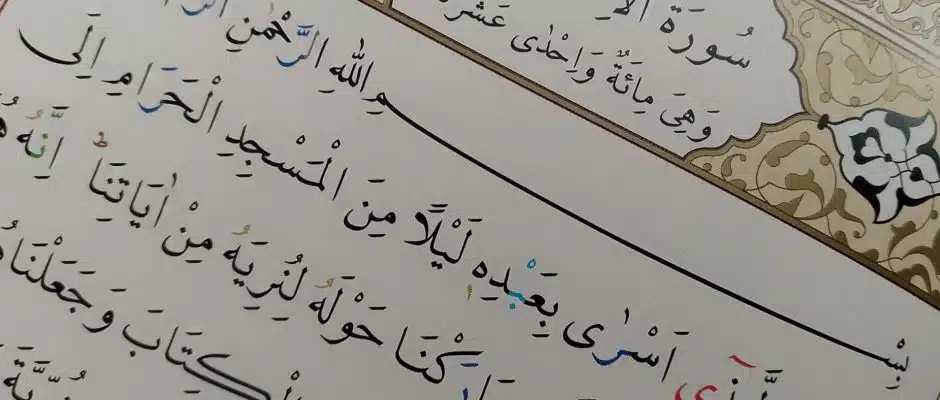 سُورَةُ
وَهِيَ مِائَةٌ وَاِحْدٰى عَشْرَةَ
بِسْمِ اللّٰهِ الرَّحْمٰنِ
اَسْرٰى بِعَبْدِهِ لَيْلًا مِنَ الْمَسْجِدِ الْحَرَامِ اِلَى
حَوْلَهُ لِنُرِيَهُ مِنْ اٰيَاتِنَاۜ اِنَّهُ
الْكِتَابَ وَجَعَلْنَاهُ